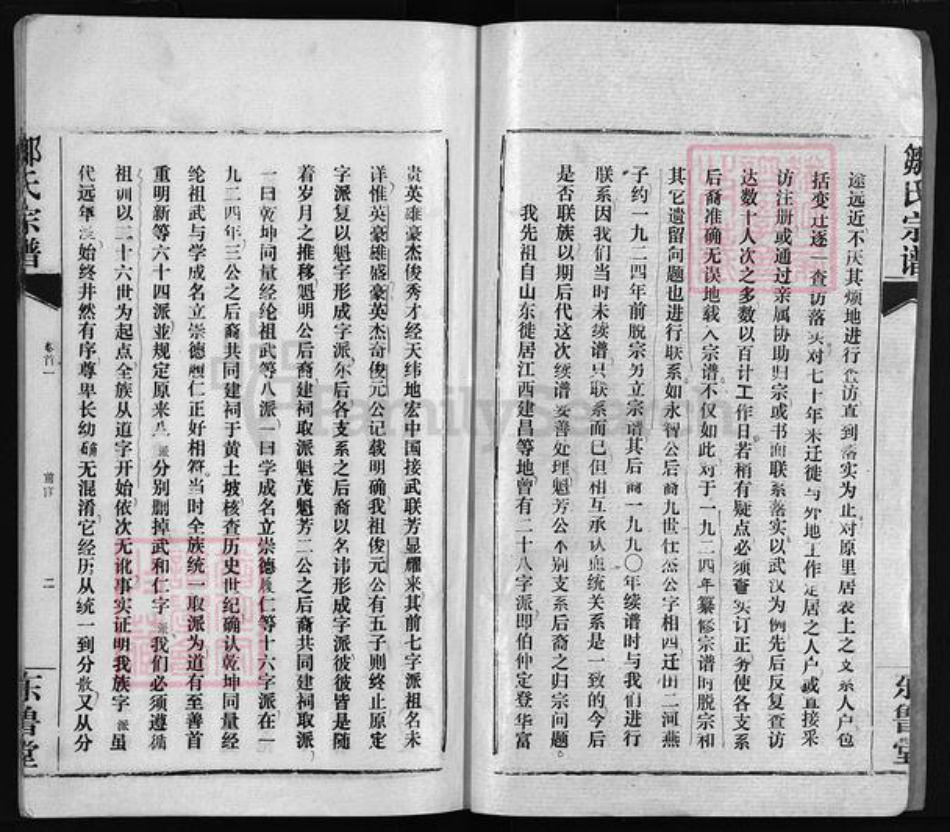 邹氏宗谱
途远近不厌其烦地进行查访直到落实为止对原里居表上之文系人户包
括变迁逐一查访落实对七十年来迁徙与外地工作定居之人户或直接采
访注册或通过亲属协助归宗或书面联系落实以武汉为例先后反复查访
达数十人次之多数以百计工作日若稍有疑点必须查实订正务使各支系
后裔准确无误地载入宗谱不仅如此对于一九二四年纂修宗谱时脱宗和
其它遗留问题也进行联系如永智公后裔九世仕杰公字相四迁山二河燕
子约一九二四年前脱宗另立宗谱其后裔一九九〇年续谱时与我们进行
联系因我们当时未续谱只联系而已但相互承认血统关系是一致的今后
是否联族以期后代这次续谱妥善处理魁芳公个别支系后裔之归宗问题
我先祖自山东徙居江西建昌等地曾有二十八字派即伯仲定登华富
东鲁堂
贵英雄豪杰俊秀才经天纬地宏中国接武联芳显耀来其前七字派祖名未
详惟英豪雄盛豪英杰奇俊元公记载明确我祖俊元公有五子则终止原定
字派复以魁字形成字派尔后各支系之后裔以名讳形成字派彼彼皆是随
着岁月之推移魁明公后裔建祠取派魁茂魁芳二公之后裔共同建祠取派
一曰乾坤同量经纶祖武等八派一曰学成名立崇德履仁等十六字派在一
九二四年三公之后裔共同建祠于黄土坡核查历史世纪确认乾坤同量经
纶祖武与学成名立崇德履仁正好相符当时全族统一取派为道有至善首
重明新等六十四派並规定原来八派分别删掉武和仁字派我们必须遵循
祖训以二十六世为起点全族从道字开始依次无讹事实证明我族字派虽
代远年 始终井然有序尊卑长幼确无混淆它经历从统一到分散又从分
邹氏宗谱
卷首一
二
东鲁堂